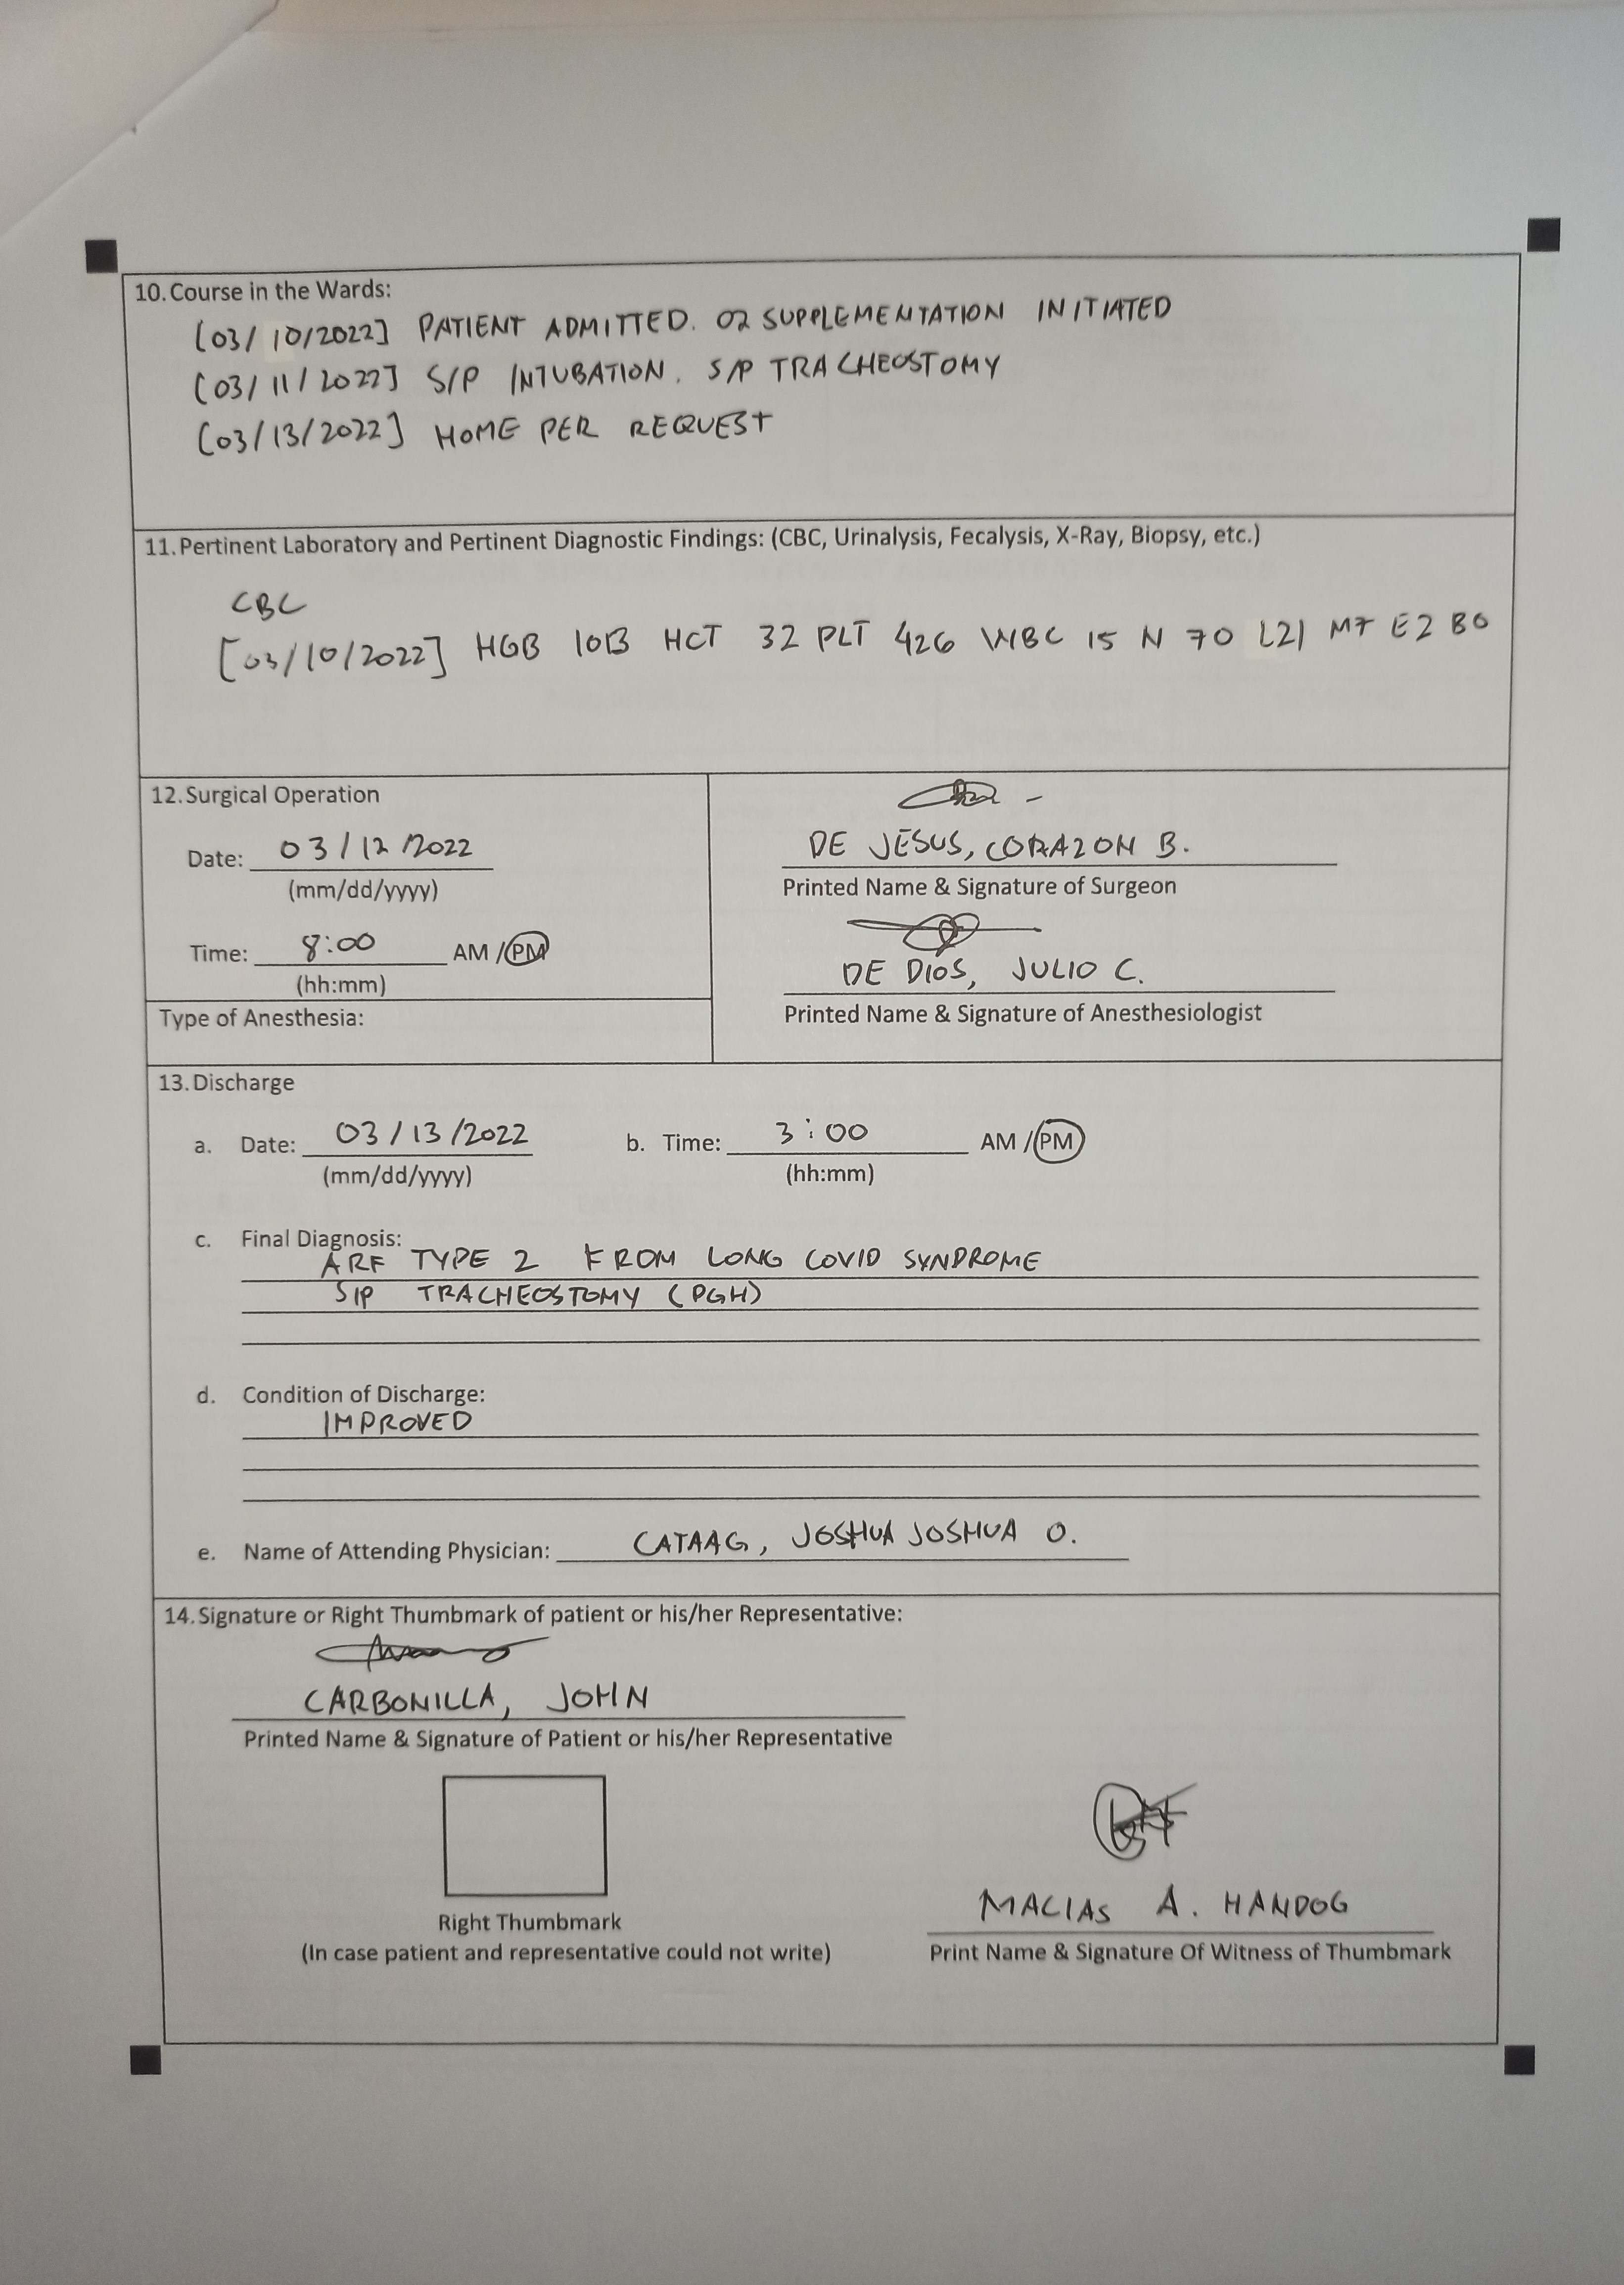 10. Course in the Wards:
[03/10/2022] PATIENT ADMITTED. O2 SUPPLEMENTATION INITIATED
[03/11/2022] S/P INTUBATION. S/P TRACHEOSTOMY
[03/13/2022] HOME PER REQUEST
11. Pertinent Laboratory and Pertinent Diagnostic Findings: (CBC, Urinalysis, Fecalysis, X-Ray, Biopsy, etc.)
CBC
[03/10/2022] HGB 103 HCT 32 PLT 426 WBC 15 N 70 L21 M7 E2 B0
12. Surgical Operation
Date: 03/12/2022
(mm/dd/yyyy)
Time: 8:00 AM / PM
(hh:mm)
Type of Anesthesia:
DE JESUS, CORAZON B.
Printed Name & Signature of Surgeon
DE DIOS, JULIO C.
Printed Name & Signature of Anesthesiologist
13. Discharge
a. Date: 03/13/2022 b. Time: 3:00 AM / PM
(mm/dd/yyyy) (hh:mm)
c. Final Diagnosis:
ARF TYPE 2 FROM LONG COVID SYNDROME
S/P TRACHEOSTOMY (PGH)
d. Condition of Discharge:
IMPROVED
e. Name of Attending Physician: CATAAG, JOSHUA JOSHUA O.
14. Signature or Right Thumbmark of patient or his/her Representative:
CARBONILLA, JOHN
Printed Name & Signature of Patient or his/her Representative
Right Thumbmark
(In case patient and representative could not write)
MACIAS A. HANDOG
Print Name & Signature Of Witness of Thumbmark